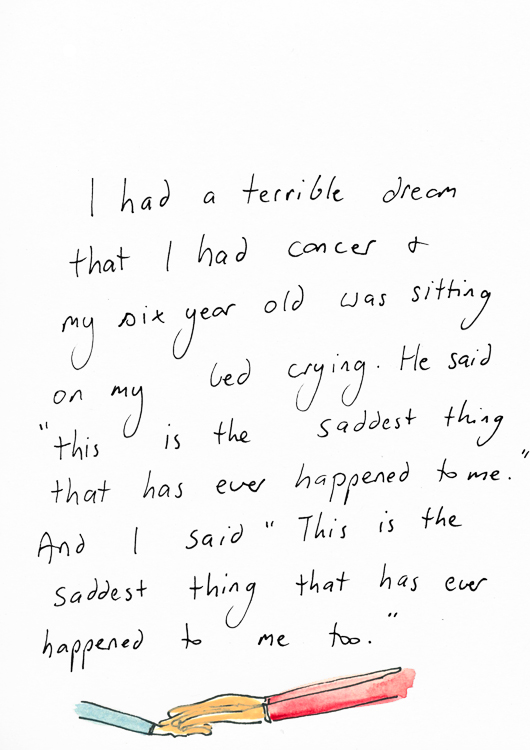 I had a terrible dream
that I had cancer &
my six year old was sitting
on my bed crying. He said
"this is the saddest thing
that has ever happened to me."
And I said "This is the
saddest thing that has ever
happened to me too."